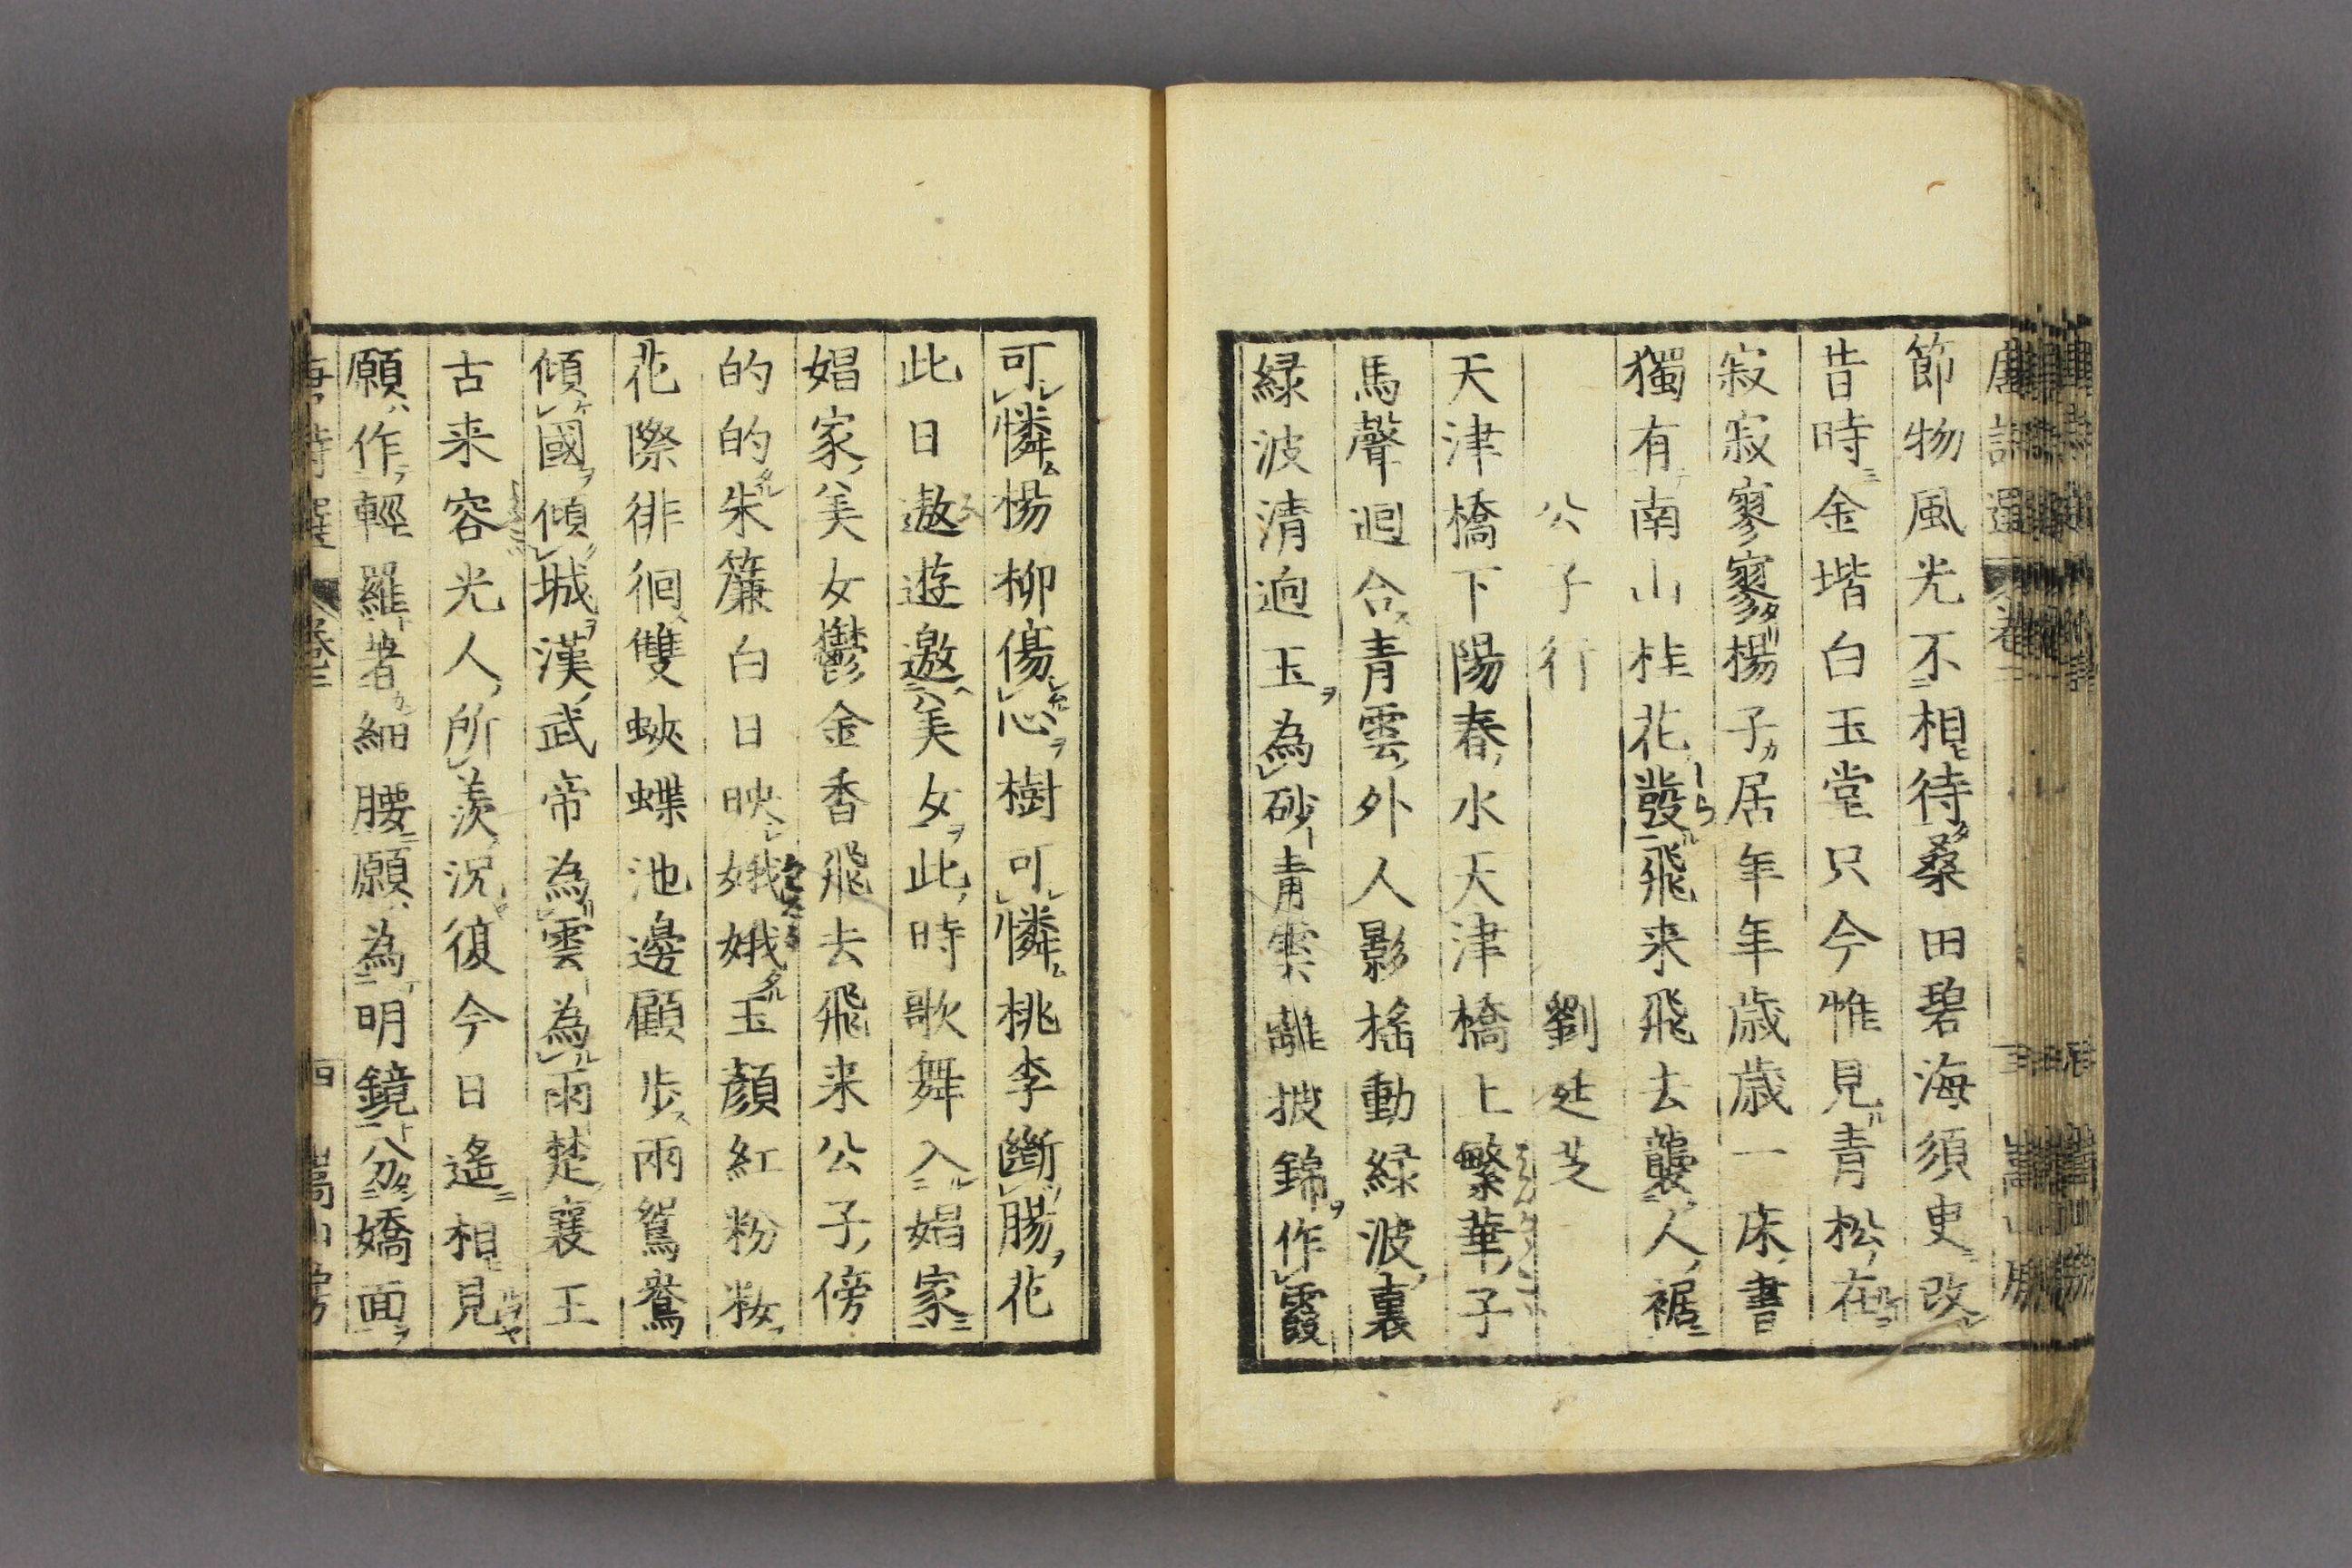 節物風光不相待桑田碧海須臾改
昔時金堦白玉堂只今惟見青松在
寂寂寥寥楊子居年年歳歳一床書
獨有南山桂花發飛来飛去襲人裾
公子行　劉廷芝
天津橋下陽春水天津橋上繁華子
馬聲迴合青雲外人影搖動緑波裏
緑波清迥玉為砂青雲離披錦作霞
可憐楊柳傷心樹可憐桃李斷腸花
此日遨遊邀美女此時歌舞入娼家
娼家美女鬱金香飛去飛来公子傍
的的朱簾白日映娥娥玉顔紅粉妝
花際徘徊雙蛺蝶池邊顧歩兩鴛鴦
傾國傾城漢武帝為雲為雨楚襄王
古来容光人所羨況復今日遙相見
願作輕羅著細腰願為明鏡分嬌面